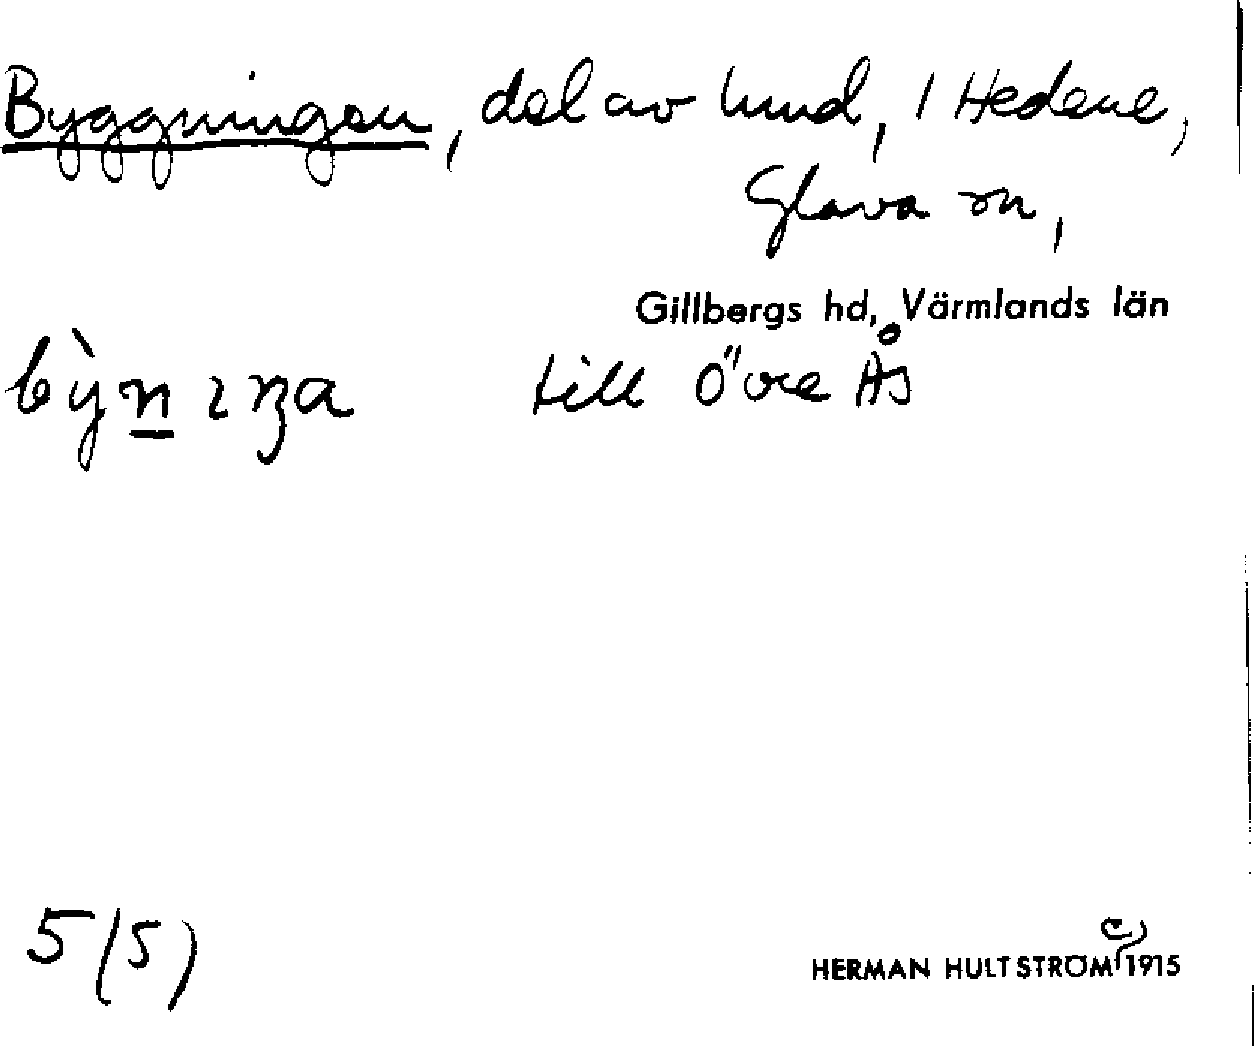 Byggningen, del av Lund, 1 Hedene,
Glava sn,
Gillbergs hd, Värmlands län
till Övre Ås
5 (5)
HERMAN HULTSTRÖM 1915